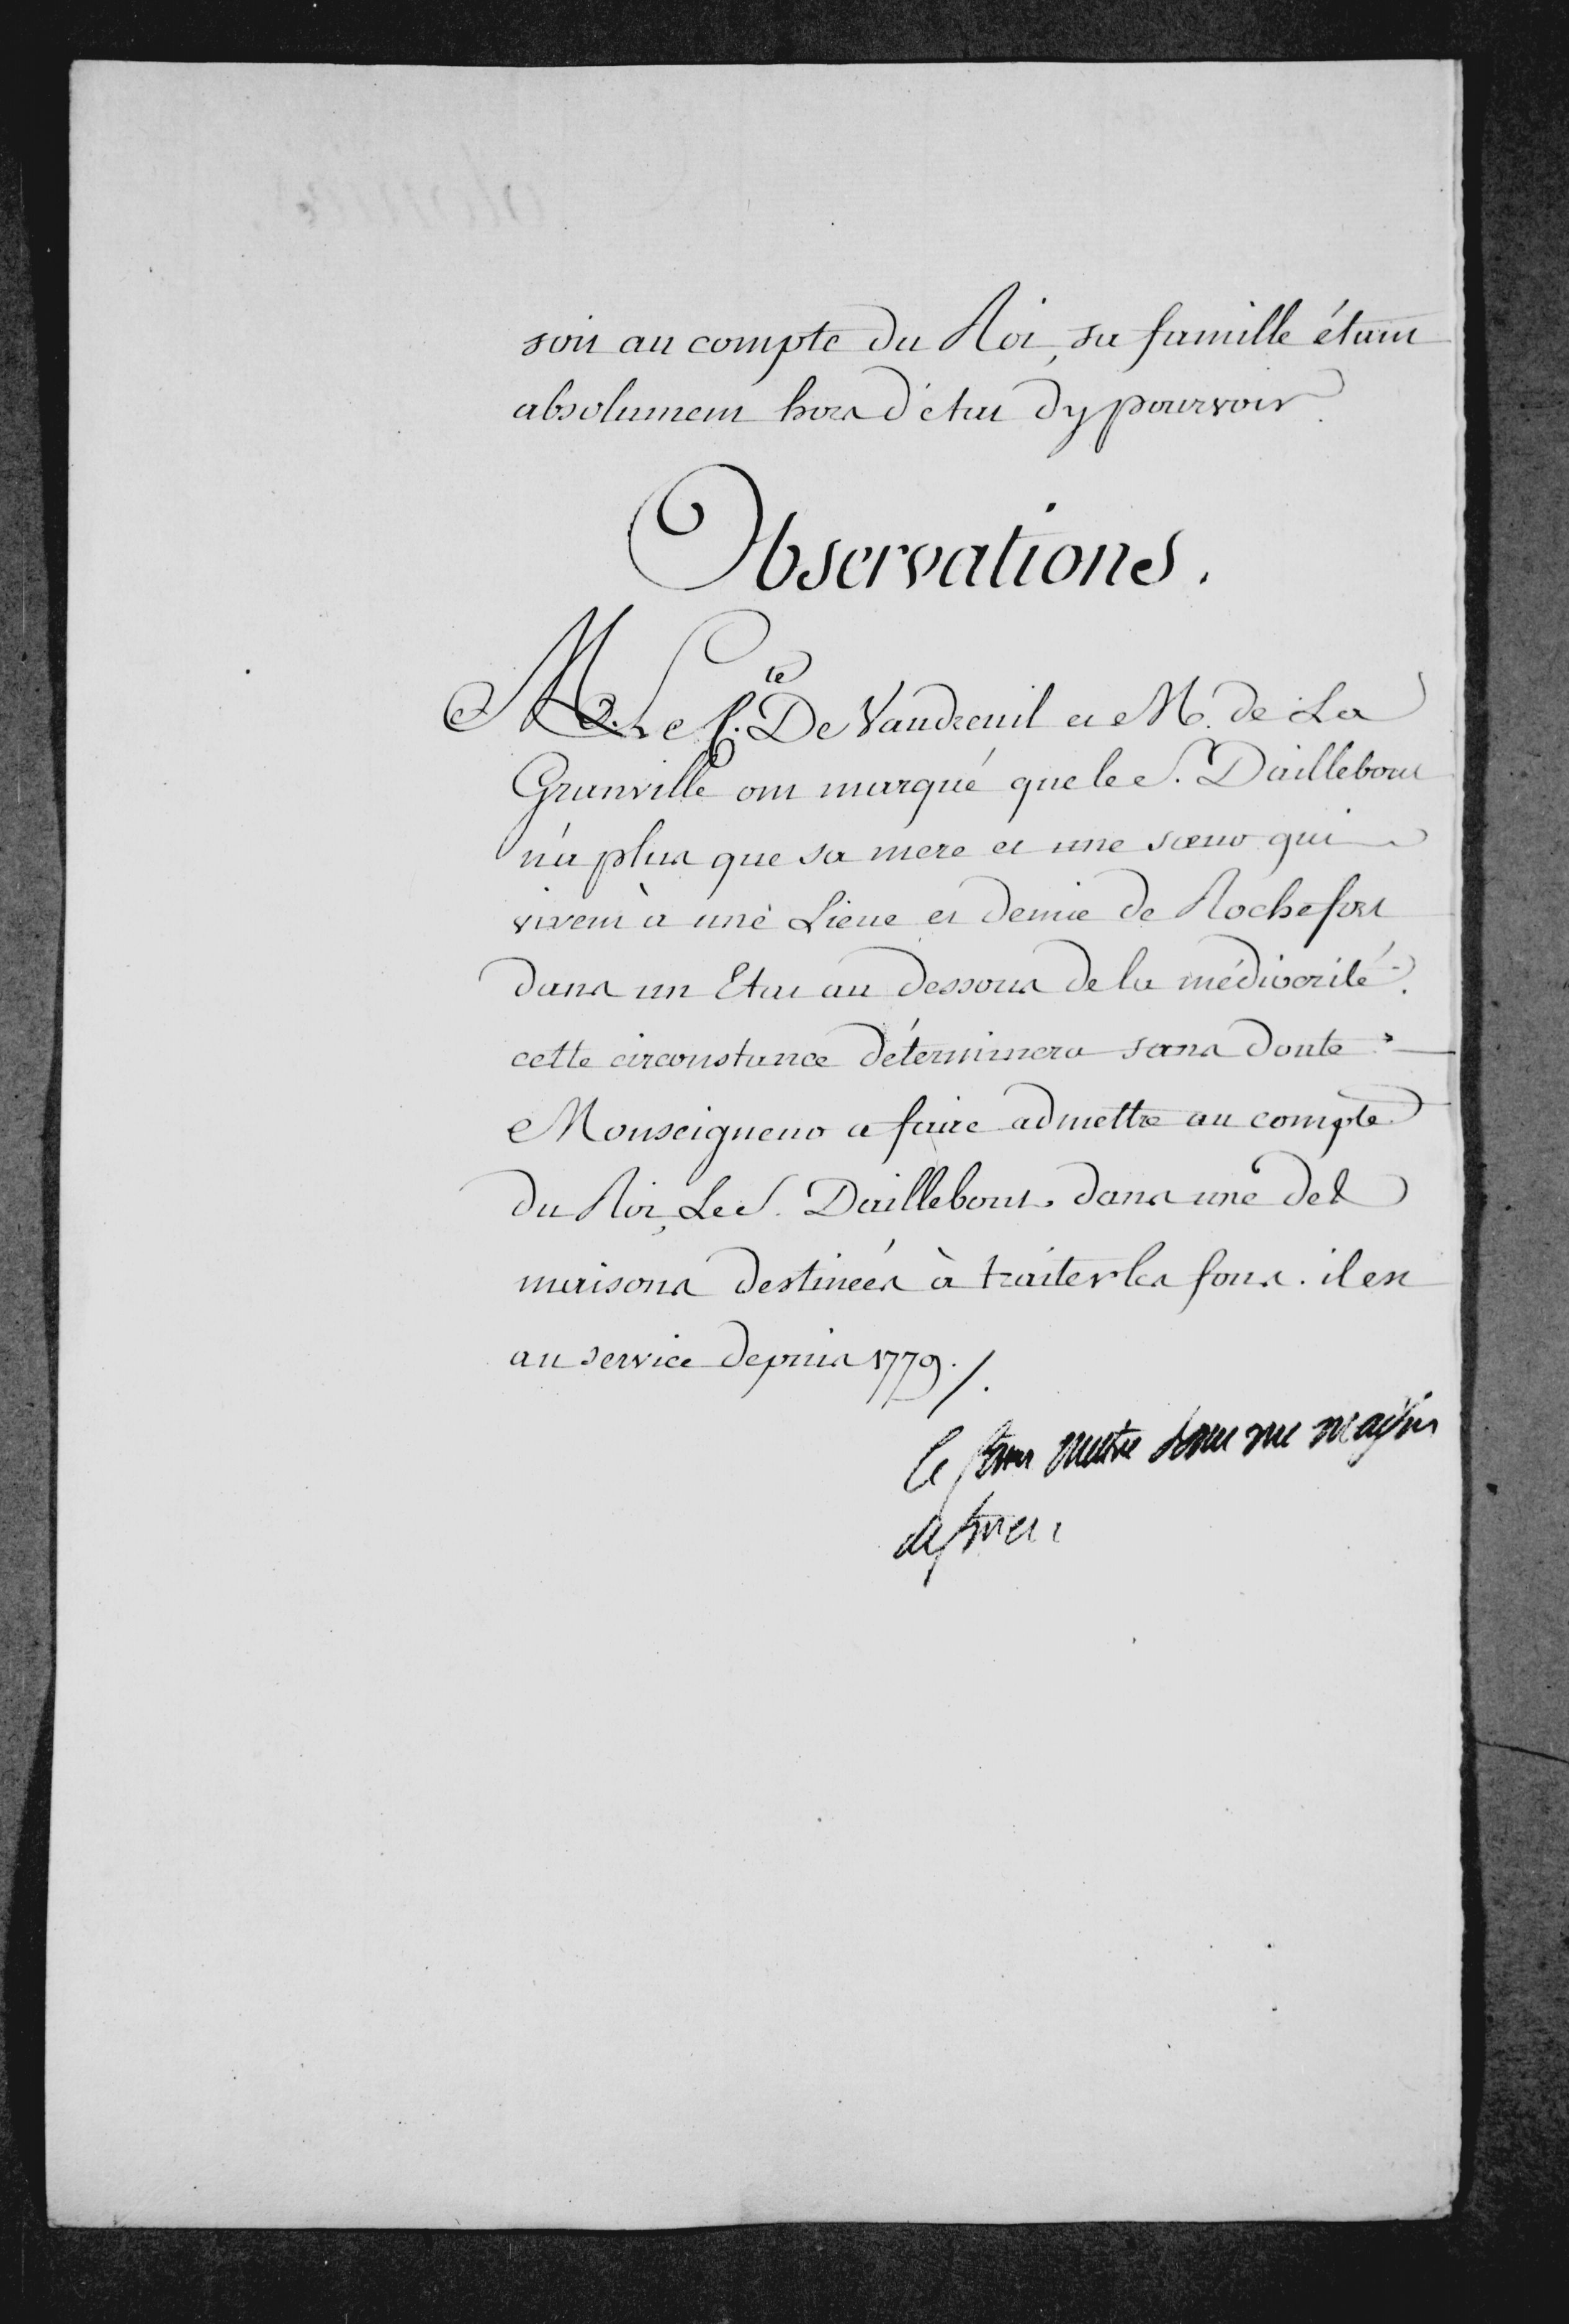 soit au compte du Roi, sa famille étant
absolument hors d'état d'y pourvoir.
Observations.
M. Le C.te De Vaudreuil et M. de La
Granville ont marqué que le S. Daillebout
n'a plus que sa mere et une soeur qui
vivent à une Lieue et demie de Rochefort
dans un Etat au dessous de la médiocrité.
cette circonstance déterminera sans doute
Monseigneur a faire admettre au compte
du Roi, Le S. Daillebout dans une des
maisons destinées à traiter les fous. il est
au service depuis 1779 ./.
le faire mettre dans une maison
de force